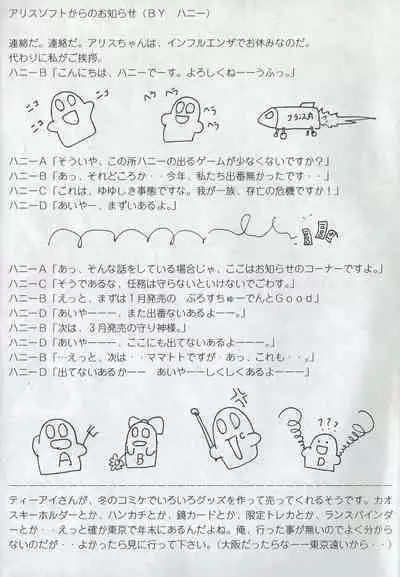 アリスソフトからのお知らせ(BY ハニー)
連絡だ。連絡だ。アリスちゃんは、インフルエンザでお休みなのだ。
代わりに私がご挨拶。
ハニーB「こんにちは、ハニーでーす。よろしくねーーうふっ。」
ニコ
ニコ
ヘラ
ヘラ
ハニーA「そういや、この所ハニーの出るゲームが少なくないですか?」
ハニーB「あっ、それどころか・・今年、私たち出番無かったです・・」
ハニーC「これは、ゆゆしき事態ですな。我が一族、存亡の危機ですか!」
ハニーD「あいやー、まずいあるよ。」
ハニーA「あっ、そんな話をしている場合じゃ、ここはお知らせのコーナーですよ。」
ハニーC「そうであるな、任務は守らないといけないでごわす。」
ハニーB「えっと、まずは1月発売の ぷろすちゅーでんとGood」
ハニーD「あいやーーー、また出番ないあるよーー。」
ハニーB「次は、3月発売の守り神様。」
ハニーD「あいやーーー、ここにも出てないあるよーーー。」
ハニーB「…えっと、次は・・ママトトですが・あっ、これも・・。」
ハニーD「出てないあるかーー あいやーーしくしくあるよーーー」
A
B
C
???
D
ティーアイさんが、冬のコミケでいろいろグッズを作って売ってくれるそうです。カオ
スキーホルダーとか、ハンカチとか、鏡カードとか、限定トレカとか、ランスバインダ
ーとか・・えっと確か東京で年末にあるんだよね。俺、行った事が無いのでよく分から
ないのだが・・よかったら見に行って下さい。(大阪だったらなーー東京遠いから・・)